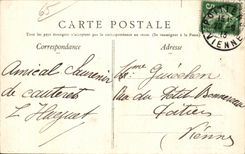 65
CARTE POSTALE
Tous les pays étrangers n'acceptent pas la correspondance au recto. (Se renseigner à la Poste)
Correspondance
Adresse
Amical Souvenir
de Cauterets
Rue du Petit Bonneveau
Poitiers
Vienne
VIENNE